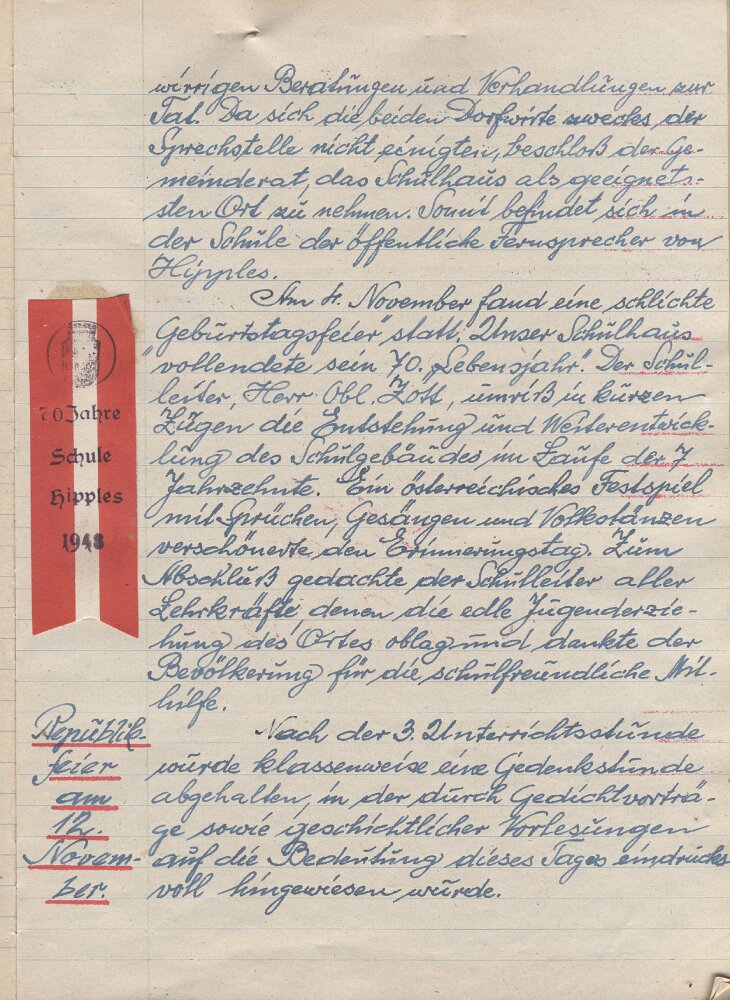 wirrigen Beratungen und Verhandlungen zur
Tat. Da sich die beiden Dorfwirte zwecks der
Sprechstelle nicht einigten, beschloß der Ge-
meinderat, das Schulhaus als geeignets-
sten Ort zu nehmen. Somit befindet sich in
der Schule der öffentliche Fernsprecher von
Hipples.
Am 4. November fand eine schlichte
"Geburtstagsfeier" statt. Unser Schulhaus
vollendete sein 70. "Lebensjahr". Der Schul-
leiter, Herr Obl. Zott, umriß in kurzen
Zügen die Entstehung und Weiterentwick-
lung des Schulgebäudes im Laufe der 7
Jahrzehnte. Ein österreichisches Festspiel
mit Sprüchen, Gesängen und Volkstänzen
verschönerte den Erinnerungstag. Zum
Abschluß gedachte der Schulleiter aller
Lehrkräfte, denen die edle Jugenderzie-
hung des Ortes oblag und dankte der
Bevölkerung für die schulfreundliche Mit-
hilfe.
70 Jahre
Schule
Hipples
1948
Republik-
feier
am
12.
Novem-
ber.
Nach der 3. Unterrichtsstunde
wurde klassenweise eine Gedenkstunde
abgehalten, in der durch Gedichtvorträ-
ge sowie geschichtlicher Vorlesungen
auf die Bedeutung dieses Tages eindrucks
voll hingewiesen wurde.